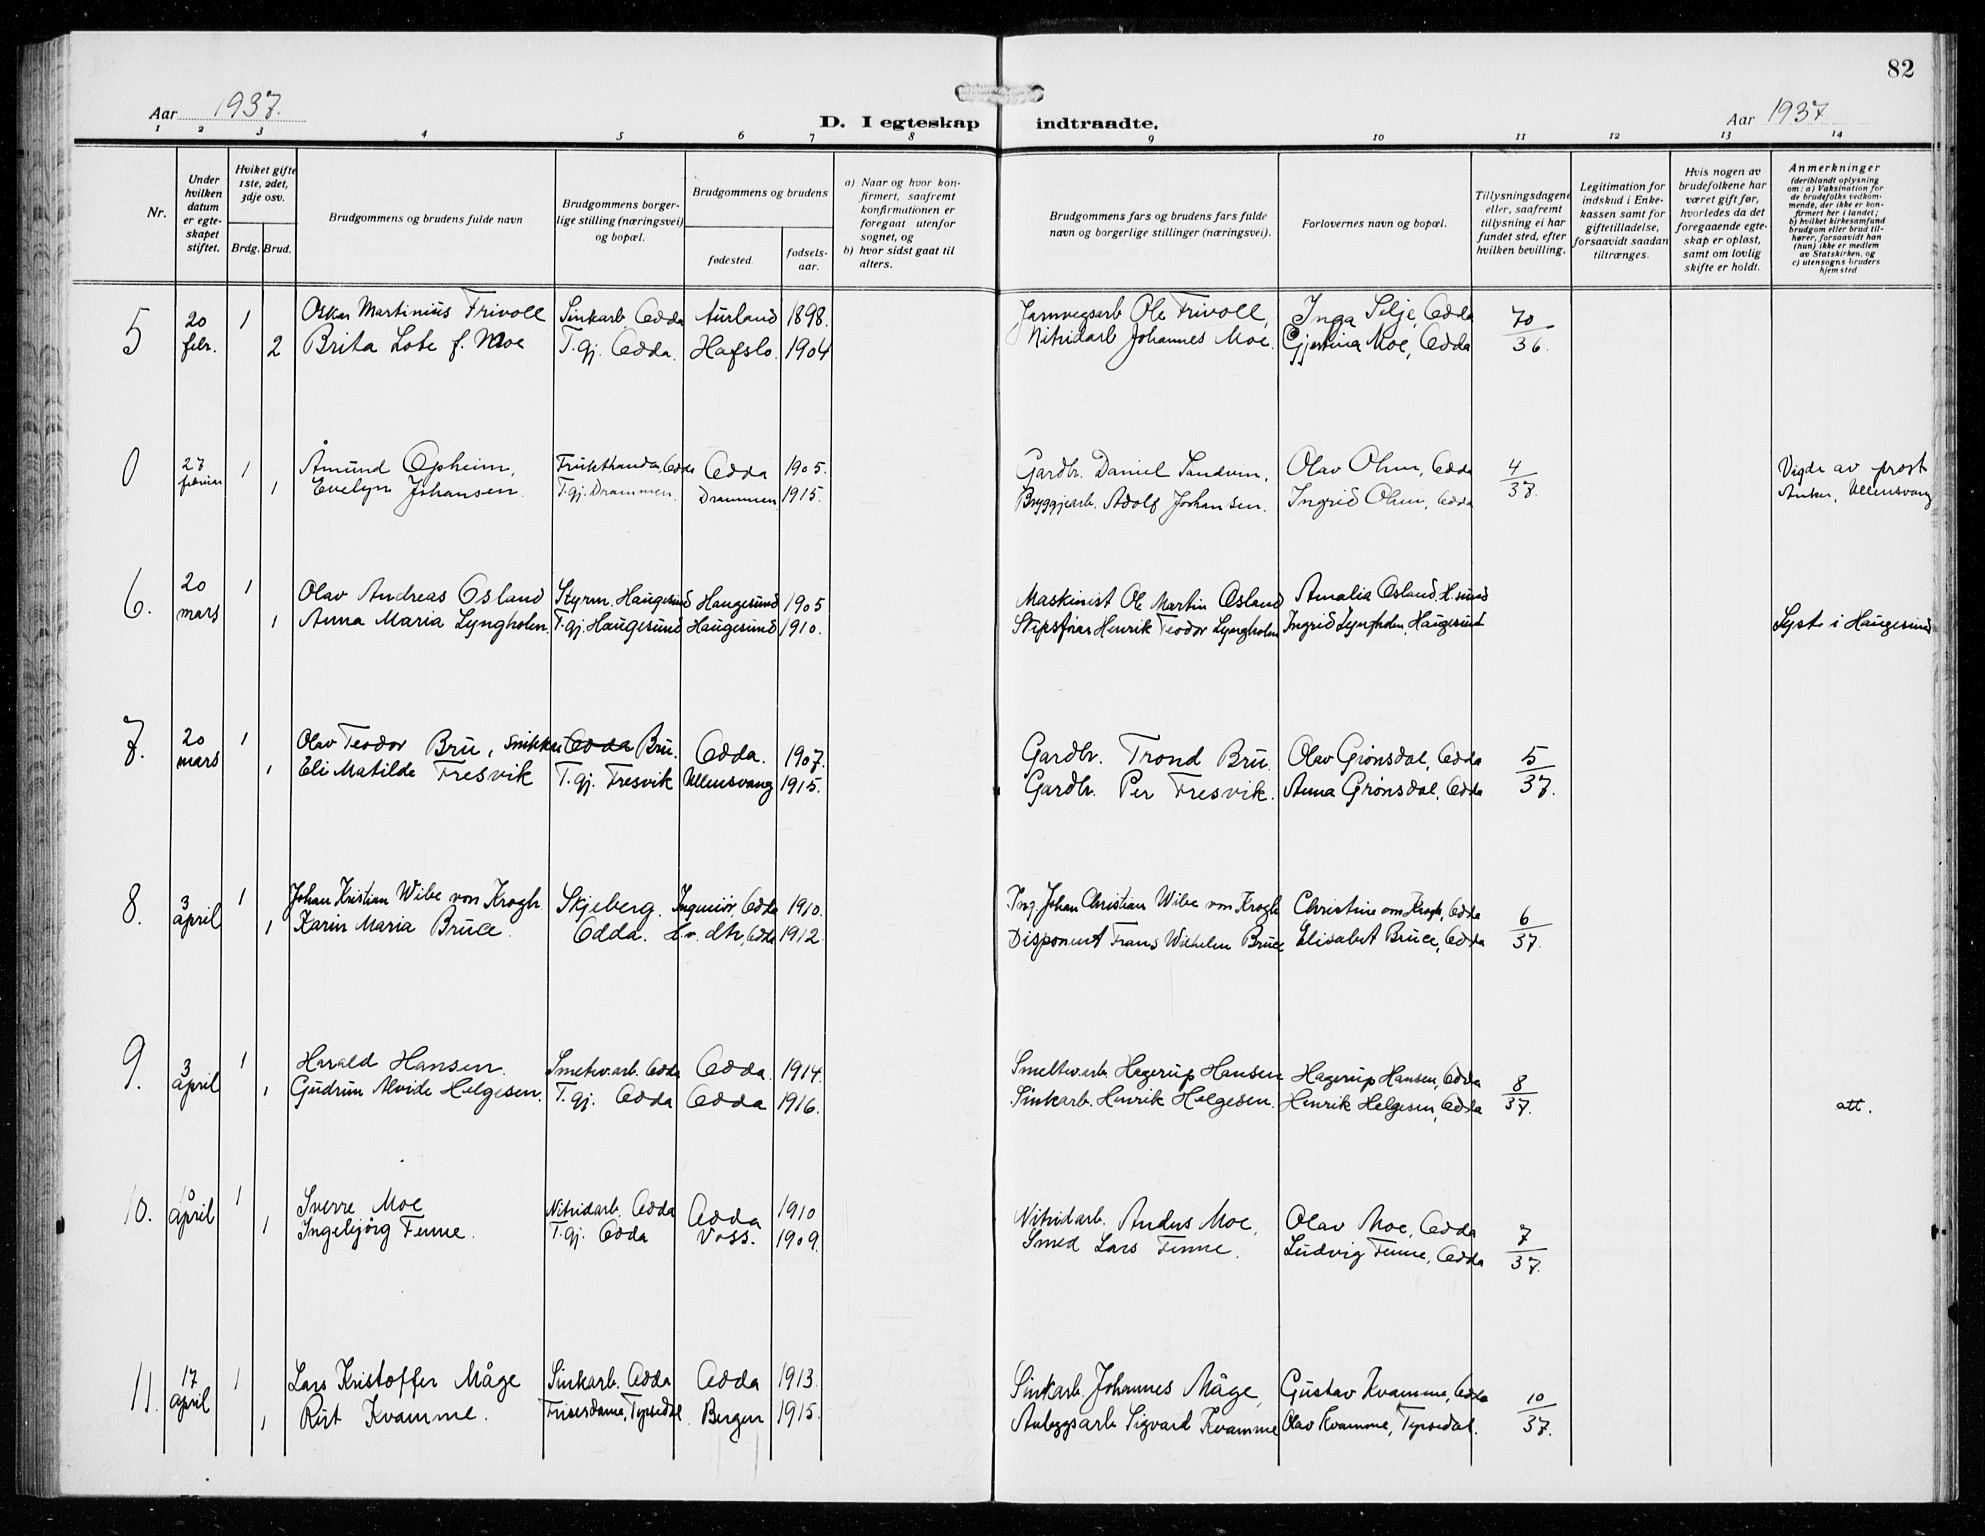 82
Aar 1937.
D. I egteskap indtraadte.
Aar 1937
1 2 3 4 5 6 7 8 9 10 11 12 13 14
Nr.
Under hvilken datum er egteskapet stiftet.
Hviket gifte 1ste, 2det, 3dje osv.
Brdg. Brud.
Brudgommens og brudens fulde navn
Brudgommens borgerlige stilling (næringsvei) og bopæl.
Brudgommens og brudens
fødested. fødselsaar.
a) Naar og hvor konfirmert, saafremt konfirmationen er foregaat utenfor sognet, og
b) hvor sidst gaat til alters.
Brudgommens fars og brudens fars fulde navn og borgerlige stillinger (næringsvei).
Forlovernes navn og bopæl.
Tillysningsdagene eller, saafremt tillysning ei har fundet sted, efter hvilken bevilling.
Legitimation for indskud i Enkekassen samt for giftetilladelse, forsaavidt saadan tiltrænges.
Hvis nogen av brudefolkene har været gift før, hvorledes da det foregaaende egteskap er opløst, samt om lovlig skifte er holdt.
Anmerkninger (deriblandt oplysning om: a) Vaksination for de brudefolks vedkommende, der ikke er konfirmert her i landet; b) hvilket kirkesamfund brudgom eller brud tilhører, forsaavidt han (hun) ikke er medlem av Statskirken, og c) utensogns bruders hjemsted
5 20 febr. 1 Oskar Martinius Frivoll Sinkarb. Odda Aurland 1898. Jarnvegsarb Ole Frivoll, Inga Silje, Odda 70/36.
2 Brita Lote f. Moe T. gj. Odda. Hafslo. 1904 Nitridarb Johannes Moe. Gjertina Moe, Odda
0 27 februar 1 Åmund Opheim, Frukthandla, Odda Odda 1905. Gardbr. Daniel Sandvin, Olav Ohm, Odda 4/37. Vigde av prost
1 Evelyn Johansen. T. gj. Drammen. Drammen 1915. Bryggjearb. Adolf Johansen. Ingrid Ohm, Odda Anker, Ullensvang
6. 20 mars 1 Olav Andreas Osland Styrm. Haugesund Haugesund 1905 Maskinist Ole Martin Osland Amalia Osland. H.sund
1 Anna Maria Lyngholm. T. gj. Haugesund Haugesund 1910. Skipsførar Henrik Teodor Lyngholm Ingrid Lyngholm, Haugesund Lyst i Haugesund
7. 20 mars 1 Olav Teodor Bru, Snikkar Odda Bru. Odda. 1907. Gardbr. Trond Bru. Olav Grønsdal, Odda 5/37.
1 Eli Matilde Fresvik T. gj. Fresvik Ullensvang 1915. Gardbr. Per Fresvik. Anna Grønsdal, Odda
8. 3 april 1 Johan Kristian Wibe von Krogh Skjeberg. Ingeniør, Odda 1910. Ing. Johan Christian Wibe von Krogh Christine von Krogh, Odda 6/37.
1 Karin Maria Bruce. Odda. H.v. dtr, Odda 1912. Disponent Frans Wilhelm Bruce Elisabet Bruce, Odda
9. 3 april 1 Harald Hansen. Smeltev.arb. Odda Odda. 1914. Smeltev.arb. Hagerup Hansen Hagerup Hansen, Odda 8/37.
1 Gudrun Alvide Helgesen. T. gj. Odda Odda 1916. Sinkarb. Henrik Helgesen. Henrik Helgesen, Odda att.
10. 10 april 1 Sverre Moe Nitridarb. Odda Odda 1910 Nitridarb. Anders Moe, Olav Moe, Odda 7/37.
1 Ingebjørg Fenne. T. gj. Odda Voss. 1909. Smed Lars Fenne. Ludvig Fenne, Odda
11. 17 april 1 Lars Kristoffer Måge Sinkarb. Odda Odda 1913. Sinkarb. Johannes Måge, Gustav Kvamme, Odda 10/37.
1 Rut Kvamme. Friserdame, Tyssedal Bergen 1915. Anleggsarb Sigvard Kvamme Olav Kvamme, Tyssedal.